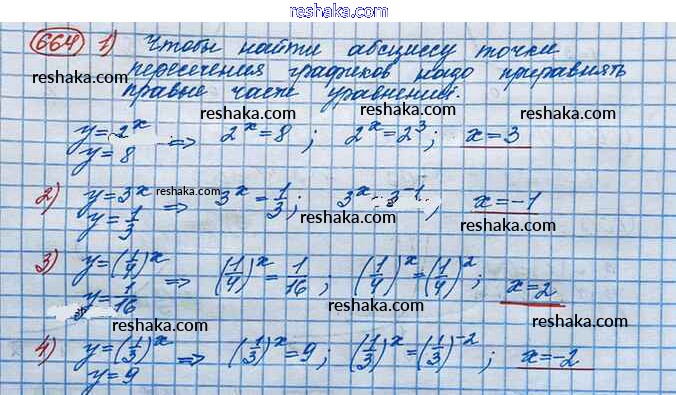 reshak.ru
664 1) Чтобы найти абсциссу точки
пересечения графиков надо приравнять
правые части уравнений.
reshaka.com
reshaka.com
reshaka.com
y=2^x
y=8 => 2^x=8; 2^x=2^3; x=3
reshaka.com
reshaka.com
reshaka.com
2) y=3^x
y=1/3 => 3^x=1/3; 3^x=3^-1; x=-1
reshaka.com
reshaka.com
reshaka.com
3) y=(1/4)^x
y=1/16 => (1/4)^x=1/16; (1/4)^x=(1/4)^2; x=2
reshaka.com
reshaka.com
reshaka.com
4) y=(1/3)^x
y=9 => (1/3)^x=9; (1/3)^x=(1/3)^-2; x=-2
reshaka.com
reshaka.com
reshaka.com